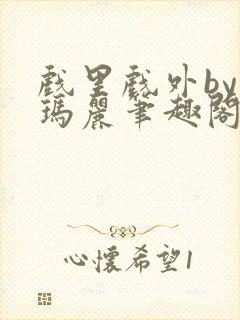 戲里戲外by
瑪麗筆趣閣
心懷希望1